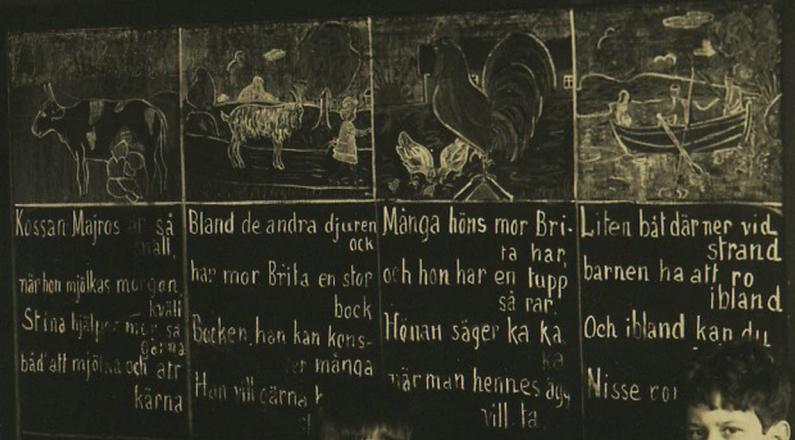 Kossan Majros är så
snäll,
när hon mjölkas morgon
kväll
Stina hjälper mor så
gärna
båd' att mjölka och att
kärna
Bland de andra djuren
ock
har mor Brita en stor
bock
Bocken, han kan kons-
ter många
Han vill gärna
Många höns mor Bri-
ta har,
och hon har en tupp
så rar.
Hönan säger ka ka
ka
när man hennes ägg
vill ta.
Liten båt där ner vid
strand
barnen ha att ro
ibland
Och ibland kan du
Nisse